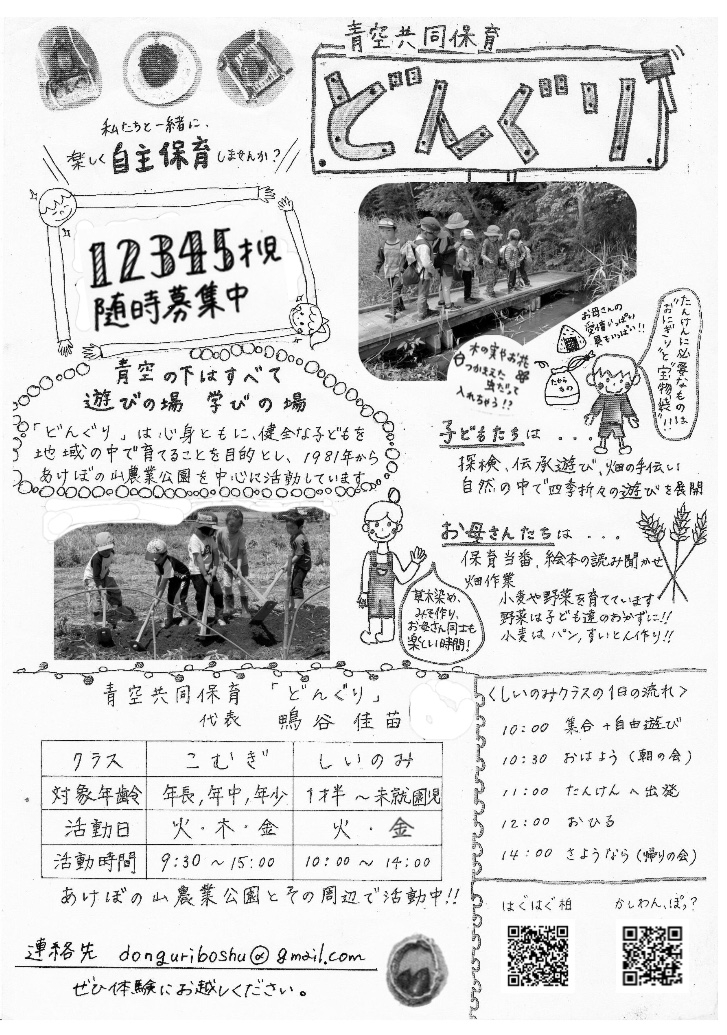 青空共同保育
どんぐり
私たちと一緒に、
楽しく自主保育しませんか？
12345才児
随時募集中
お母さんの
愛情いっぱい
具もいっぱい!!
たんけんに必要なものは
"おにぎり"と"宝物袋"!!
木の実やお花
つかまえた
虫だって
入れちゃう!?
たから
もの
青空の下はすべて
遊びの場 学びの場
「どんぐり」は心身ともに、健全な子どもを
地域の中で育てることを目的とし、1981年から
あけぼの山農業公園を中心に活動しています
子どもたちは...
探検、伝承遊び、畑の手伝い
自然の中で四季折々の遊びを展開
お母さんたちは...
保育当番、絵本の読み聞かせ
畑作業
小麦や野菜を育てています
野菜は子ども達のおかずに!!
小麦はパン、すいとん作り!!
草木染め、
みそ作り、
お母さん同士も
楽しい時間!
青空共同保育「どんぐり」
代表 鴨谷佳苗
クラス こむぎ しいのみ
対象年齢 年長,年中,年少 1才半～未就園児
活動日 火・木・金 火・金
活動時間 9:30～15:00 10:00～14:00
あけぼの山農業公園とその周辺で活動中!!
連絡先 donguriboshu@gmail.com
ぜひ体験にお越しください。
<しいのみクラスの1日の流れ>
10:00 集合+自由遊び
10:30 おはよう(朝の会)
11:00 たんけんへ出発
12:00 おひる
14:00 さようなら(帰りの会)
はぐはぐ柏 かしわん、ぽっ?